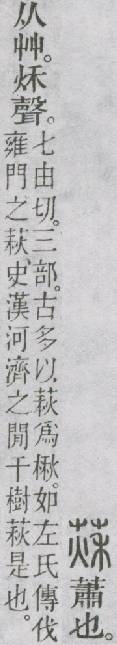 萩蕭也。
从艸。秌聲。
七由切。三部。古多以萩爲楸。如左氏傳伐
雍門之萩、史漢河濟之閒千樹萩是也。